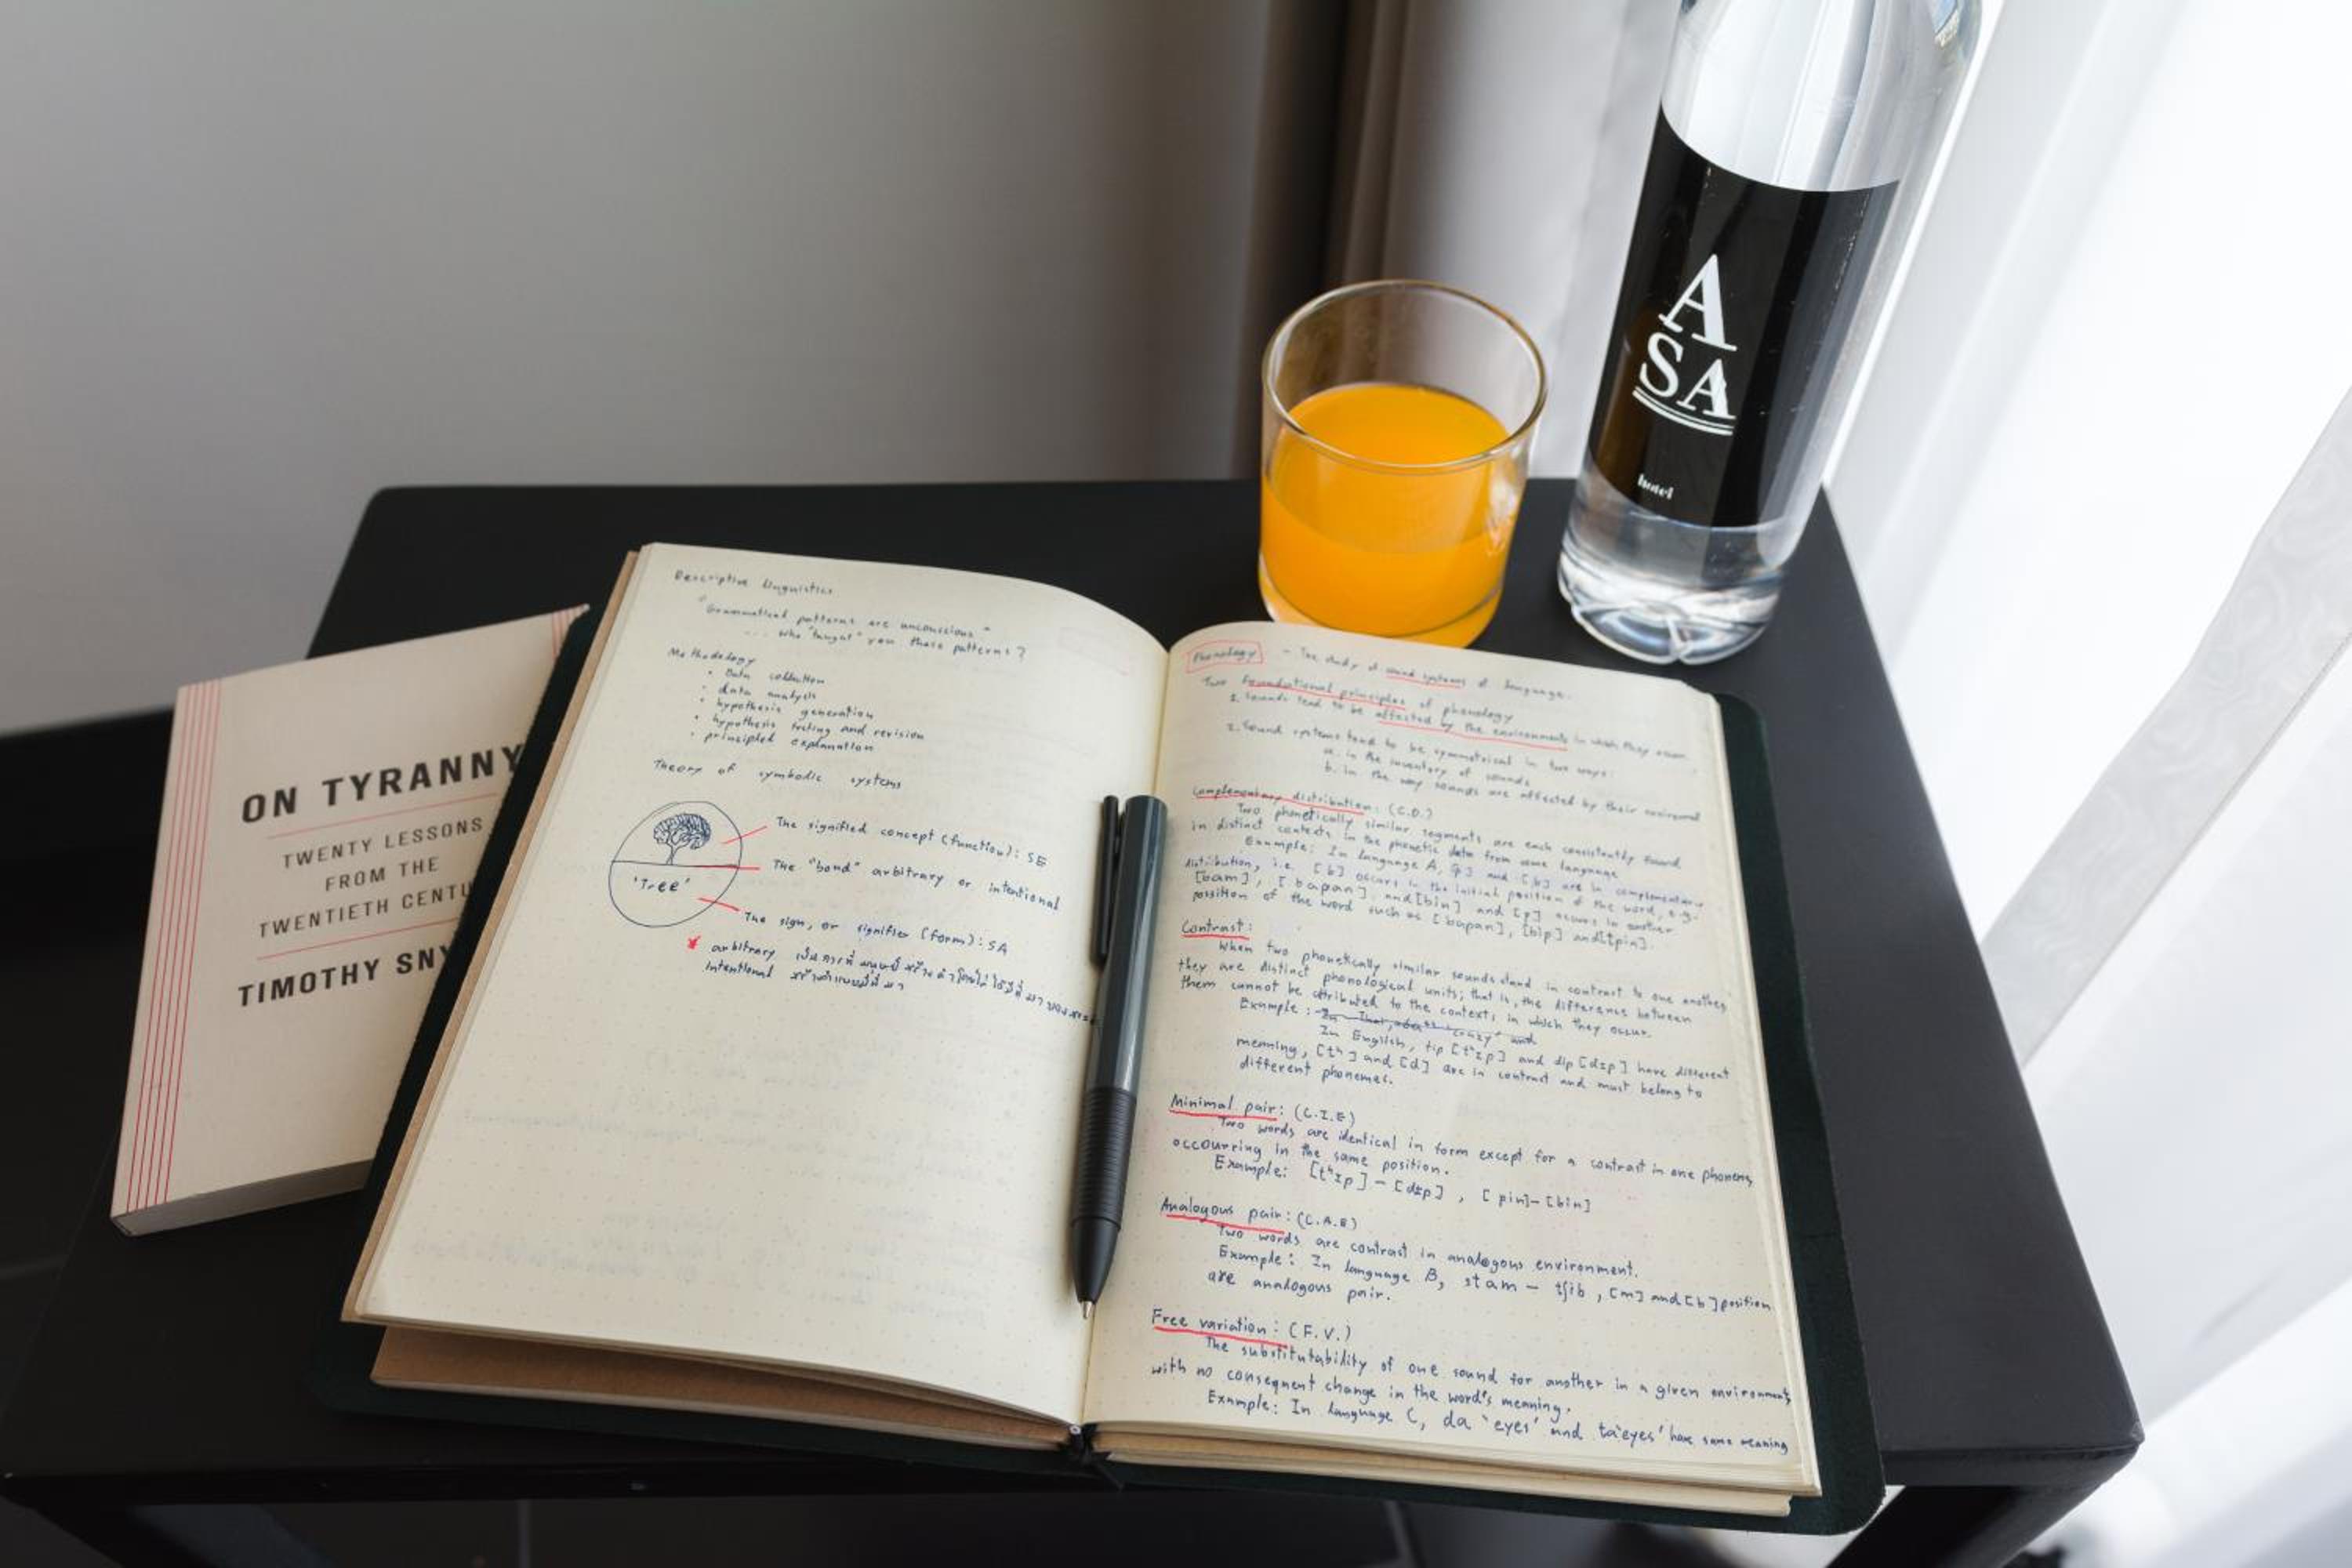 ON TYRANNY
TWENTY LESSONS
FROM THE
TWENTIETH CENTU
TIMOTHY SNY
Descriptive linguistics
"Grammatical patterns are unconscious"
... who "taught" you these patterns?
Methodology
• Data collection
• data analysis
• hypothesis generation
• hypothesis testing and revision
• principled explanation
Theory of symbolic systems
The signified concept (function): SE
The "bond" arbitrary or intentional
'Tree'
The sign, or signifier (form): SA
* arbitrary เป็นการที่มนุษย์สร้างคำโดยไม่ได้มีที่มา
intentional สร้างคำแบบมีที่มา
Phonology - The study of sound systems of language.
Two foundational principles of phonology
1. Sounds tend to be affected by the environments in which they occur.
2. Sound systems tend to be symmetrical in two ways:
a. in the inventory of sounds
b. in the way sounds are affected by their
Complementary distribution: (C.D.)
Two phonetically similar segments are each consistently found
in distinct contexts in the phonetic data from same language
Example: In language A, [p] and [b] are in complementary
distribution, i.e. [b] occurs in the initial position of the word, e.g.
[bam], [bapan], and [bin] and [p] occurs in another
possition of the word such as [bapan], [bip] and [tpin].
Contrast:
When two phonetically similar sounds stand in contrast to one another,
they are distinct phonological units; that is, the difference between
them cannot be attributed to the contexts in which they occur.
Example:
In English, tip [tʰɪp] and dip [dɪp] have different
meaning, [tʰ] and [d] are in contrast and must belong to
different phonemes.
Minimal pair: (C.I.E)
Two words are identical in form except for a contrast in one phoneme,
occourring in the same position.
Example: [tʰɪp] - [dɪp], [pin]-[bin]
Analogous pair: (C.A.E)
Two words are contrast in analogous environment.
Example: In language B, stam - tʃib, [m] and [b] position
are analogous pair.
Free variation: (F.V.)
The substitutability of one sound for another in a given environment,
with no consequent change in the word's meaning.
Example: In language C, da 'eyes' and ta 'eyes' have same meaning
A
SA
hotel